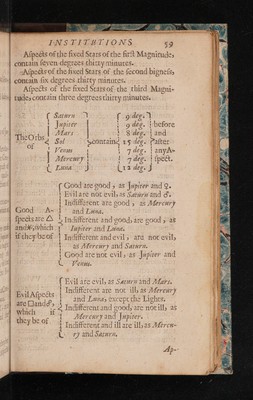 INSTITUTIONS 59
Aspects of the fixed Stars of the first Magnitude,
contain seven degrees thirty minutes.
Aspects of the fixed Stars of the second bigness,
contain six degrees thirty minutes.
Aspects of the fixed Stars of the third Magni-
tude, contain three degrees thirty minutes.
The Orbs of
Saturn
Jupiter
Mars
Sol
Venus
Mercury
Luna
contain
9 deg.
9 deg.
8 deg.
15 deg.
7 deg.
7 deg.
12 deg.
before
and
after
any A-
spect.
Good A-
spects are △
and ⚹, which
if they be of
Good are good, as Jupiter and ♀.
Evil are not evil, as Saturn and ♂.
Indifferent are good, as Mercury
and Luna.
Indifferent and good, are good, as
Jupiter and Luna.
Indifferent and evil, are not evil,
as Mercury and Saturn.
Good are not evil, as Jupiter and
Venus.
Evil Aspects
are □ and ☍,
which if
they be of
Evil are evil, as Saturn and Mars.
Indifferent are not ill, as Mercury
and Luna, except the Lights.
Indifferent and good, are not ill, as
Mercury and Jupiter.
Indifferent and ill are ill, as Mercu-
ry and Saturn.
Ap-